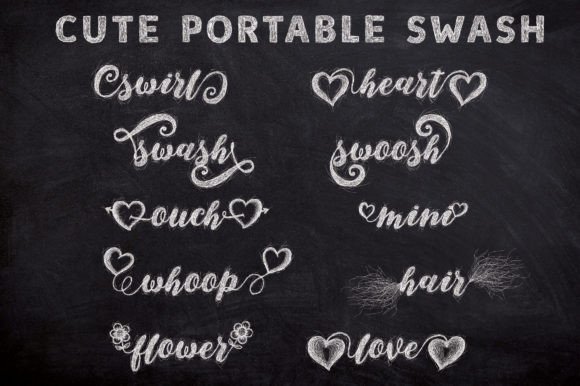 CUTE PORTABLE SWASH
swirl
heart
swash
swoosh
ouch
mini
whoop
hair
flower
love